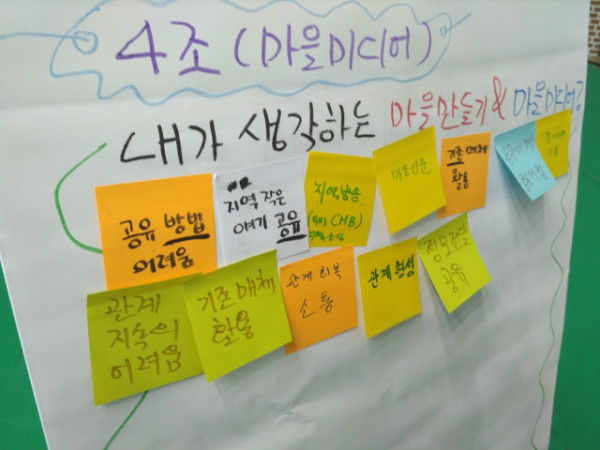 4조 (마을미디어)
내가 생각하는 마을만들기 & 마을미디어?
공유 방법
어려움
지역 작은
얘기 공유
지역방송
CMB)
마을신문
기존 매체
활용
관계
지속의
어려움
기존매체
활용
관계 회복
소통
관계 형성
정보전달
공유